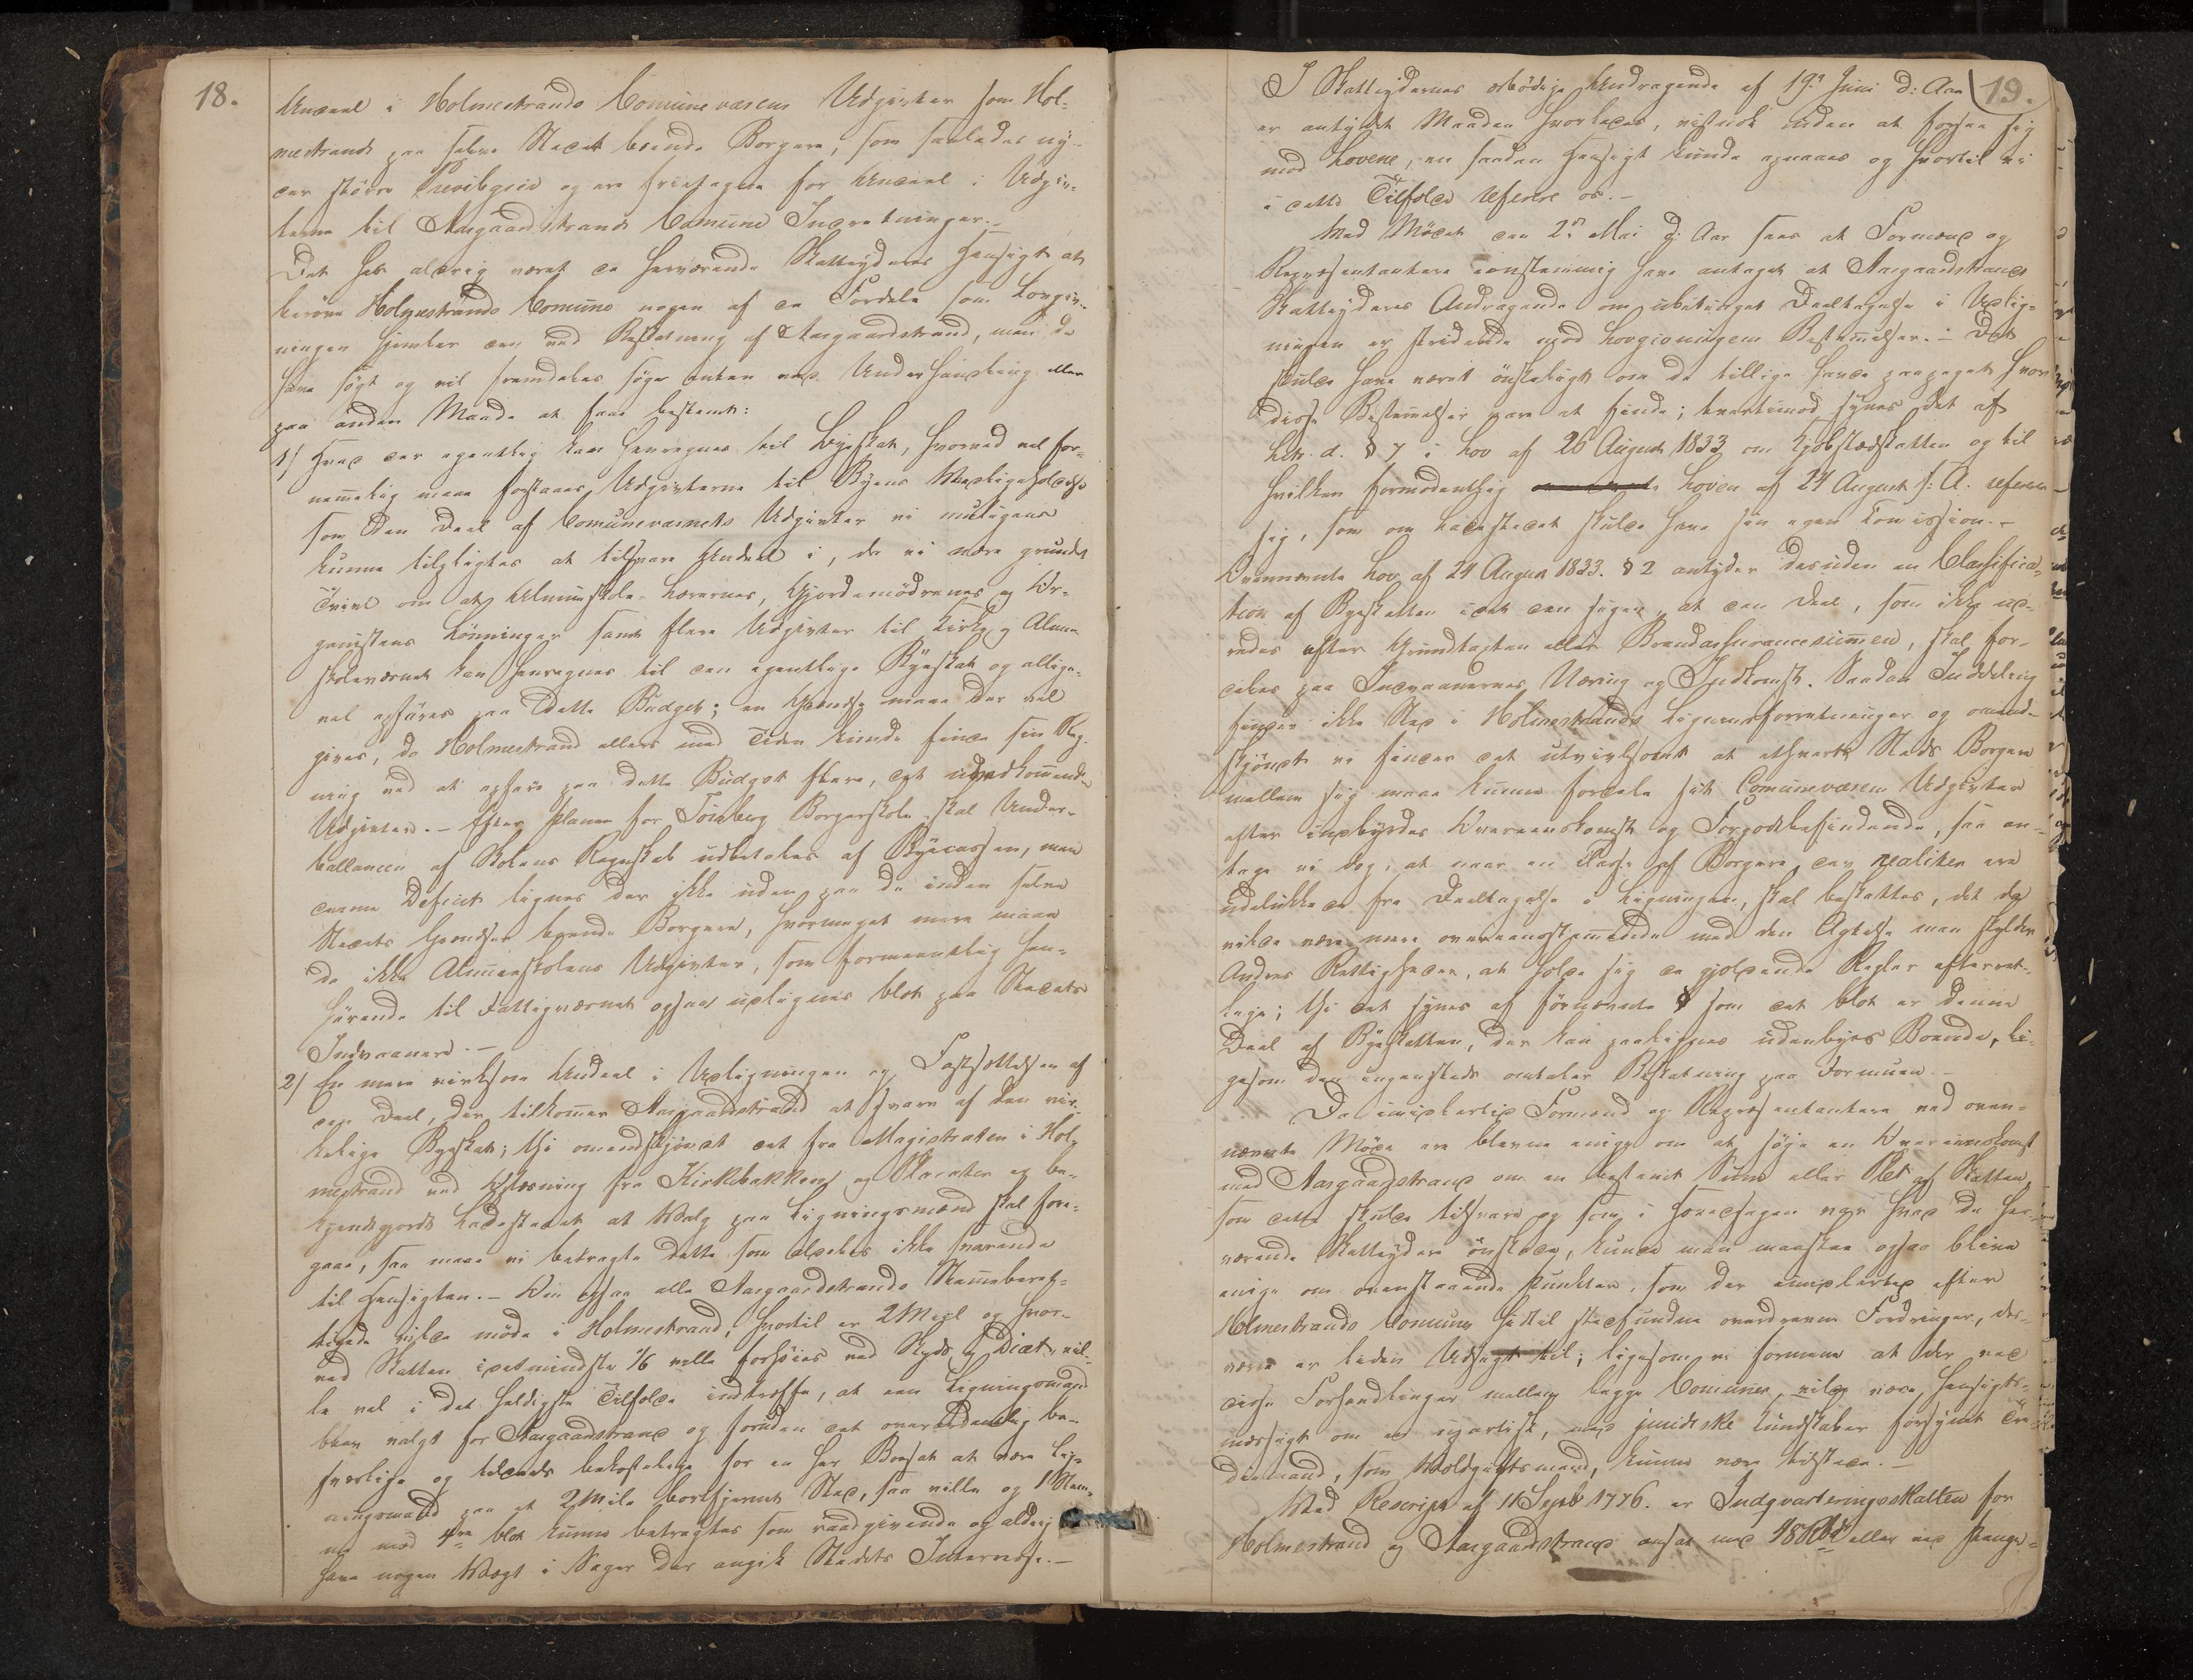 18.
Andeel i Holmestrands Comunevæsens Udgivter som Hol-
mestrands paa selve Stædet boende Borgere, som saaledes ny-
der større Previlegier og ere fritagne for Andeel i Udgiv-
terne til Aasgaardstrands Comune Indretninger.-
Det har aldrig været de herværende Skatteyderes Hensigt at
berøve Holmestrands Comune nogen af de Fordele som Lovgiv-
ningen hjemler den ved Beskatning af Aasgaardstrand, men de
have søgt og vil fremdeles søge enten ved Underhandling eller
paa anden Maade at faae bestemt:
1/ Hvad der egentlig kan henregnes til Byeskat, hvorved vel for-
nemmelig maae forstaaes Udgivterne til Byens Vedligeholdelse
som den Deel af Comunevæsnets Udgivter vi muligens
kunne tilpligtes at tilsvare Andeel i, da vi nære grundet
Tvivl om at Almueskole-Lærernes, Gjordemødrenes og Or-
ganistens Lønninger samt flere Udgivter til Kirke og Almue-
skolevæsnet kan henregnes til den egentlige Byeskat og allige-
vel opføres paa dette Budget; en Grændse maae der vel
gives, da Holmestrand ellers med Tiden kunde finde sin Reg-
ning ved at opføre paa dette Budget flere, det uvedkommende
Udgivter.- Efter Planen for Tønsberg Borgerskole skal Under-
ballancen af Skolens Regnskab udbetales af Byecassen, men
denne Deficit lignes der ikke uden paa de inden selve
Stædets Grændser boende Borgere, hvormeget mere maae
da ikke Almueskolens Udgivter, som formeentlig hen-
hørende til Fattigvæsnet ogsaa udlignes blot paa Stædets
Indvaanere.-
2/ En mere virksom Andeel i Udligningen og Fastsættelsen af
den Deel, der tilkommer Aasgaardstrand at svare af den vir-
kelige Byeskat; thi omendskjøndt det fra Magistraten i Hol-
mestrand ved Oplæsning fra Kirkebakken og Placater er be-
kjendtgjordt Ladestædet at Valg paa Ligningsmænd skal fore-
gaae, saa maae vi betragte dette som aldeles ikke svarende
til Hensigten.- Om ogsaa alle Aasgaardstrands Stemmeberet-
tigede vilde møde i Holmestrand, hvortil er 2 Miil og hvor-
ved Skatten idetmindste 1/6 ville forhøies ved Skyds og Diæt, vil-
le vel i det heldigste Tilfælde indtræffe, at een Ligningsmand
blev valgt for Aasgaardstrand og foruden det overordentlig be-
sværlige og tildeels bekostelige for en her Bosat at være Lig-
ningsmand paa et 2 Mile bortfjernet Sted, saa ville og 1 Stem-
me mod 4re blot kunne betragtes som raadgivende og aldrig
have nogen Vægt i Sager der angik Stædets Interesse.-
19.
I Skatteydernes ærbødige Andragende af 19de Juni d: Aar
er antydet Maaden hvorledes, vistnok uden at forsee sig
mod Lovene, en saadan Hensigt kunde opnaaes og hvortil vi
i dette Tilfælde referere os.-
Ved Mødet den 2den Mai d: Aar sees at Formænd og
Repræsentantere eenstemmig have antaget at Aasgaardstrands
Skatteyderes Andragende om ubetinget Deeltagelse i Udlig-
ningen er stridende mod Lovgivningens Bestemmelser.- Det
skulde have været ønskeligt om de tillige havde paapeget hvor
disse Bestemmelser vare at finde; tvertimod synes det af
Litr. d. § 7 i Lov af 26 August 1833 om Kjøbstadskatten og til
hvilken formodentlig Loven af 24 August s: A. referere
sig, som om Ladestædet skulde have sin egen Comission.-
Ovennævnte Lov af 24 August 1833. § 2 antyder desuden en Classifica-
tion af Byeskatten idet den siger, at den Deel, som ikke ud-
redes efter Grundtaxten eller Brandassurancesummen, skal for-
deles paa Indvaanernes Næring og Indkomst. Saadan Inddeling
finder ikke Sted i Holmestrands Ligningsforretninger og omend-
skjøndt vi finder det utvivlsomt at ethvert Steds Borgere
mellem sig maae kunne fordele sit Comunevæsens Udgivter
efter indbyrdes Overeenskomst og Forgodtbefindende, saa an-
tage vi dog, at naar en Classe af Borgere, der realiter ere
udelukkede fra Deeltagelse i Ligningen, skal beskattes, det da
vilde være mere overeensstemmende med den Agtelse man skylder
Andres Rettigheder, at holde sig de gjeldende Regler efterret-
lige; thi det synes af førnævnte § som det blot er denne
Deel af Byeskatten, der kan paalignes udenbyes Boende, li-
gesom den ingensteds omtaler Beskatning paa Formuen.-
Da imidlertid Formænd og Repræsentantere ved oven-
nævnte Møde ere blevne enige om at søge en Overeenskomst
med Aasgaardstrand om en bestemt Sum eller Deel af Skatten,
som dette skulde tilsvare og som i Hovedsagen var hvad de her-
værende Skatteydere ønskede, kunde man maaskee ogsaa blive
enige om ovenstaaende Punkter, som der imidlertid efter
Holmestrands Comunes hidtil stedfundne overdrevne Fordringer, des-
værre er liden Udsigt til; ligesom vi formene at der ved
disse Forhandlinger mellem begge Comuner, vilde være hensigts-
mæssigt om en upartisk, med juridiske Kundskaber forsynet Tre-
diemand, som Voldgiftsmand, kunde være tilstæde.-
Ved Rescript af 11 Septb 1776. er Indqvarteringsskatten for
Holmestrand og Aasgaardstrand ansat ved 48 Rbd eller ved Penge-